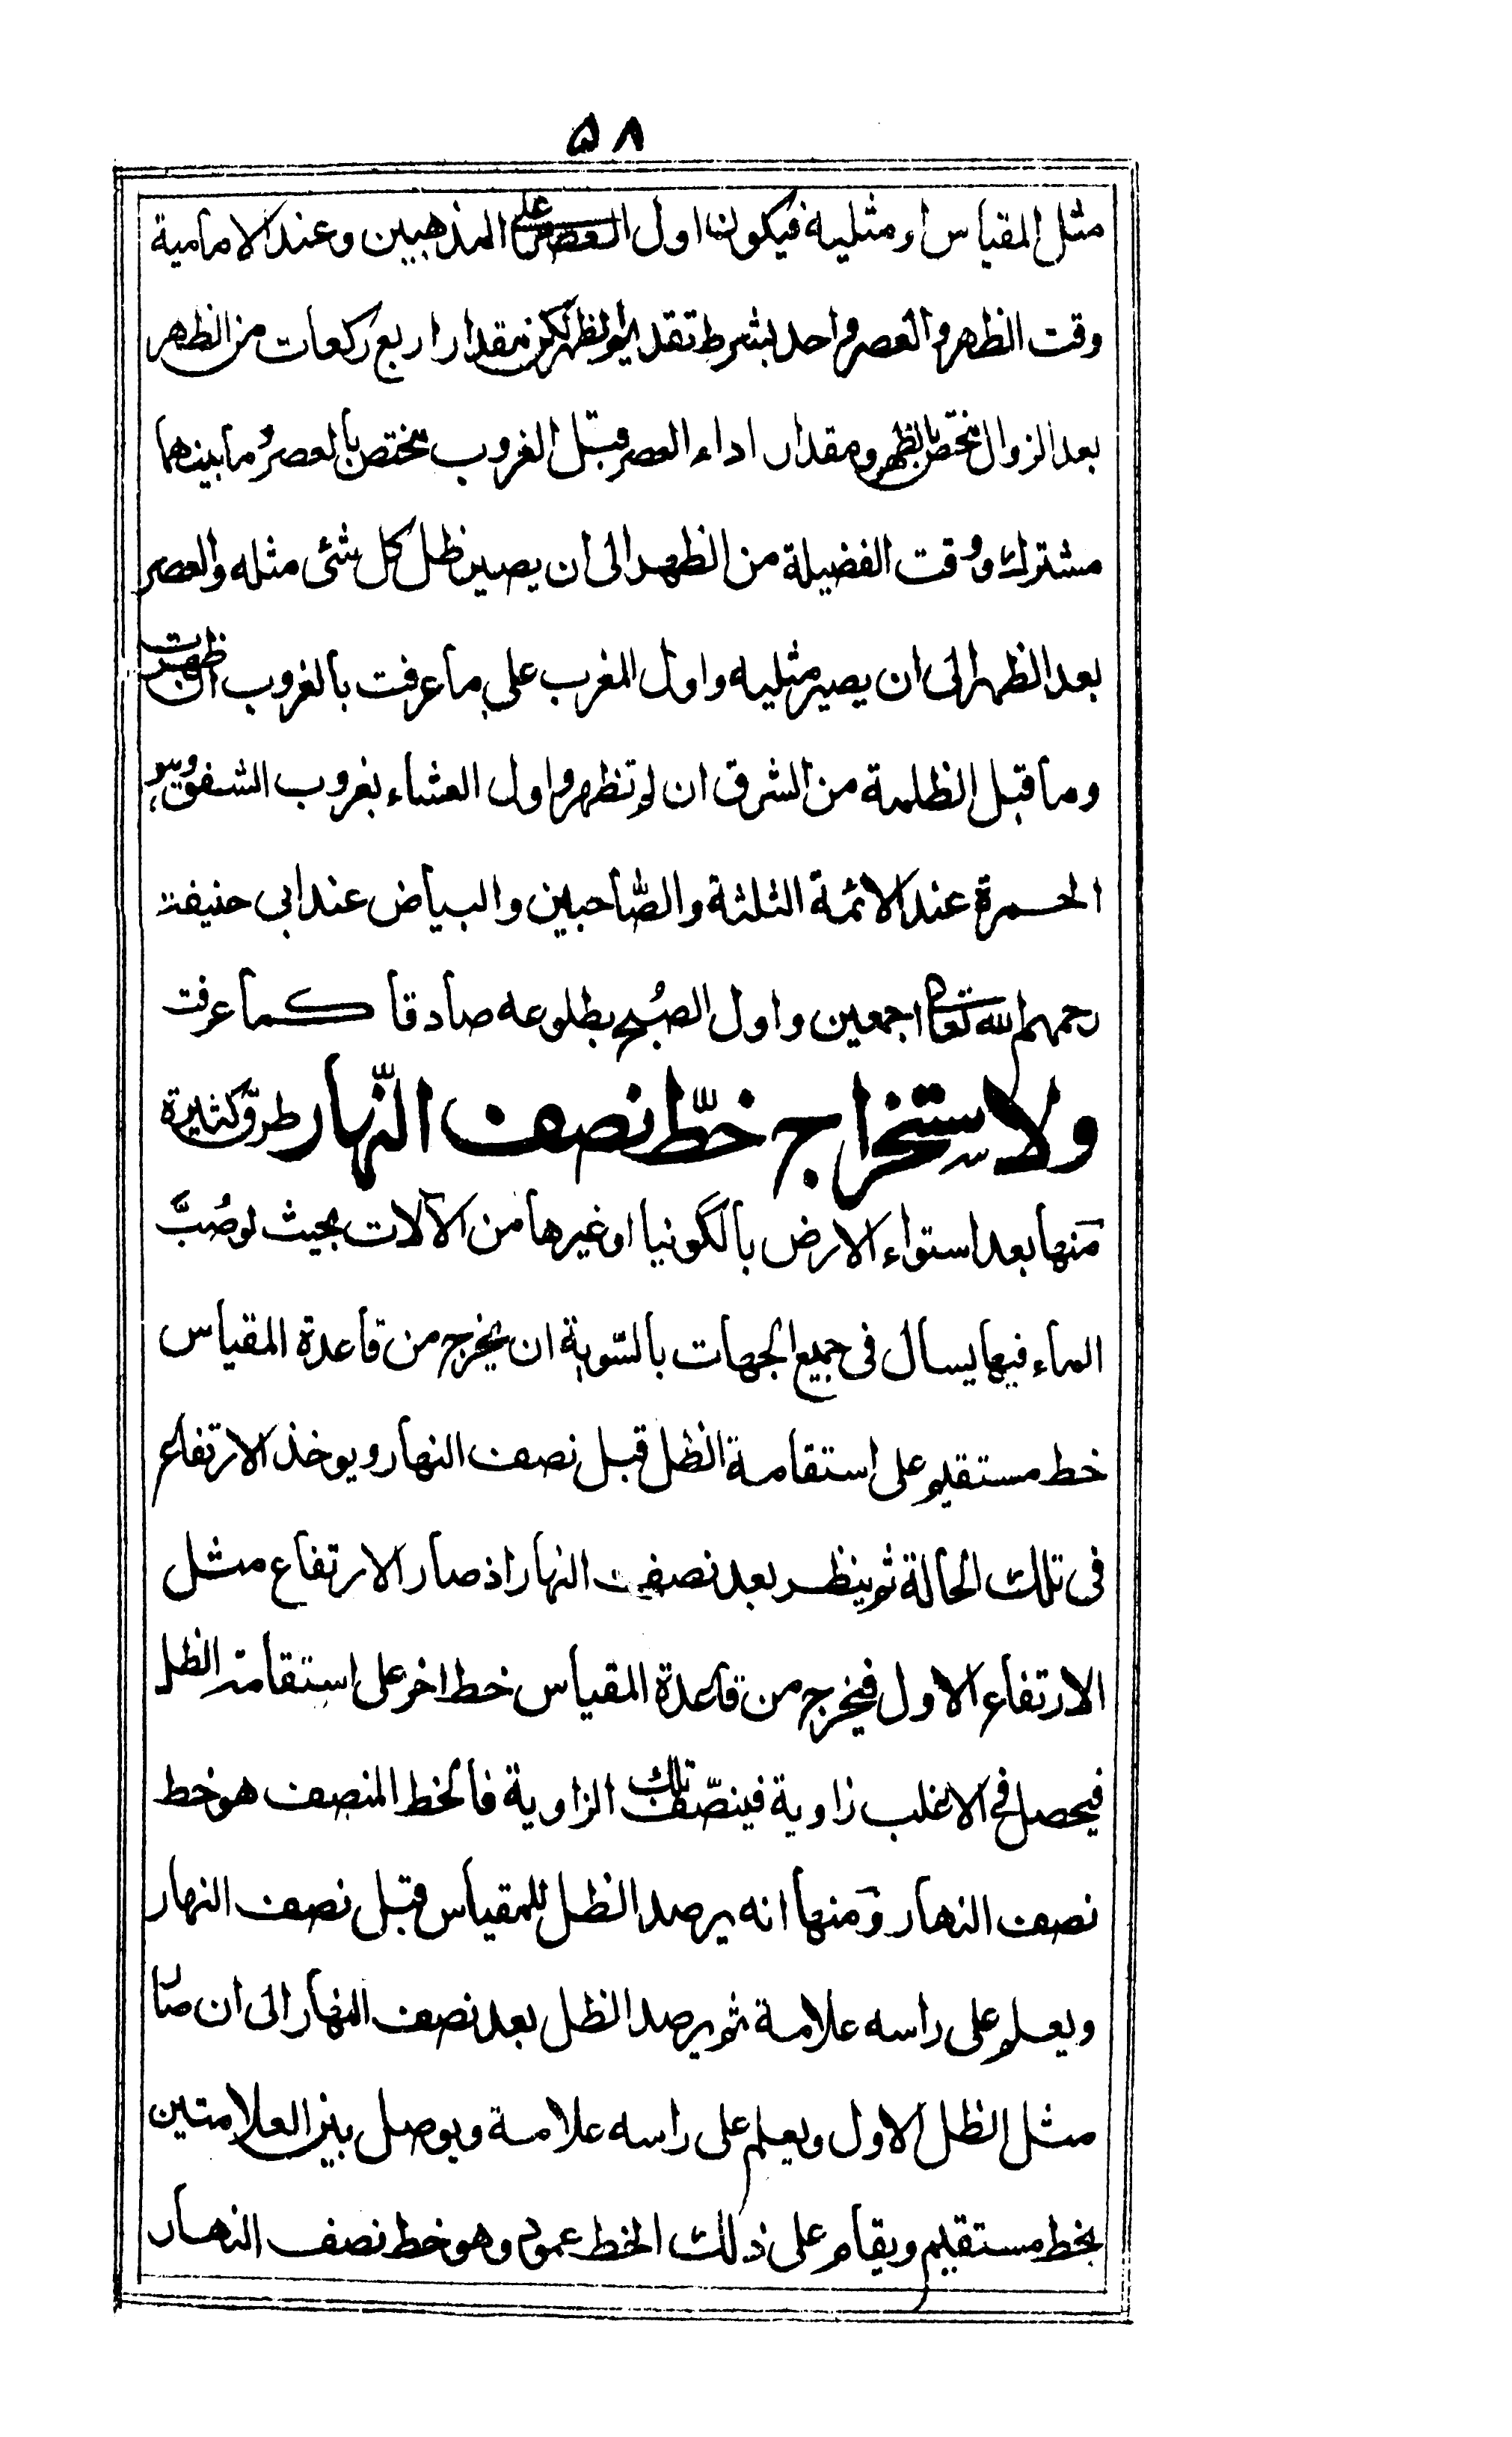 ٥٨
مثل المقياس او مثليه فيكون اول العصر على المذهبين وعند الامامية
وقت الظهر و العصر واحد بشرط تقديم الظهر لكن مقدار اربع ركعات من الظهر
بعد الزوال تختص بالظهر ومقدار اداء العصر قبل الغروب تختص بالعصر وما بينهما
مشترك و وقت الفضيلة من الظهر الى ان يصير ظل كل شئ مثله والعصر
بعد الظهر الى ان يصير مثليه واول المغرب على ما عرفت بالغروب ان ظهرت
وما قبل الظلمة من الشرق ان لم تظهر واول العشاء بغروب الشفق وهو
الحمرة عند الائمة الثلثة والصّاحبين والبياض عند ابي حنيفة
رحمهم الله تعالى اجمعين واول الصُبح بطلوعه صادقا كما عرفت
ولاستخراج خطّ نصف النّهار طرق كثيرة
منها بعد استواء الارض بالگونيا او غيرها من الآلات بحيث لو صُبَّ
الماء فيها يسال فى جميع الجهات بالسّوية ان يخرج من قاعدة المقياس
خط مستقيم على استقامة الظل قبل نصف النهار ويوخذ الارتفاع
فى تلك الحالة ثم ينظر بعد نصف النهار اذ صار الارتفاع مثل
الارتفاع الاول فيخرج من قاعدة المقياس خط اخر على استقامة الظل
فيحصل فى الاغلب زاوية فينصّف تلك الزاوية فالخط المنصف هو خط
نصف النهار ومنها انه يرصد الظل للمقياس قبل نصف النهار
ويعلم على راسه علامة ثم يرصد الظل بعد نصف النهار الى ان صار
مثل الظل الاول ويعلم على راسه علامة ويوصل بين العلامتين
بخط مستقيم ويقام على ذلك الخط عمود وهو خط نصف النهار